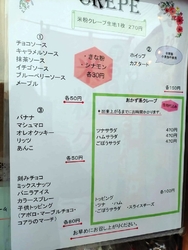 CREPE
米粉クレープ生地1枚 270円
①
チョコソース
キャラメルソース
抹茶ソース
イチゴソース
ブルーベリーソース
メープル
各50円
きな粉
シナモン
各30円
②
ホイップ
カスタード
各100円
③
バナナ
マシュマロ
オレオクッキー
リッツ
あんこ
各80円
刻みチョコ
ミックスナッツ
バニラアイス
カラースプレー
子供トッピング
(アポロ・マーブルチョコ・
コアラのマーチ)
各80円
おかず系クレープ
ツナサラダ 470円
ハムサラダ 470円
ごぼうサラダ 470円
トッピング
・ツナ ・ハム
・ごぼうサラダ ・スライスチーズ
各100円
お早めにお召し上がりください。